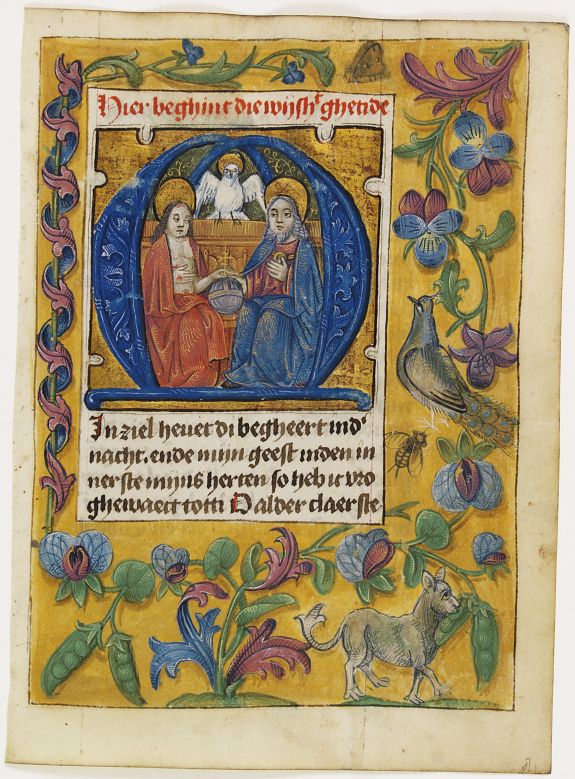 Hier beghint die wijsht ghetide
MIn ziel hevet di begheert in d'
nacht. ende mijn geest in den in
nerste mijns herten so heb ic vro
ghewaect tot ti O alder claerste